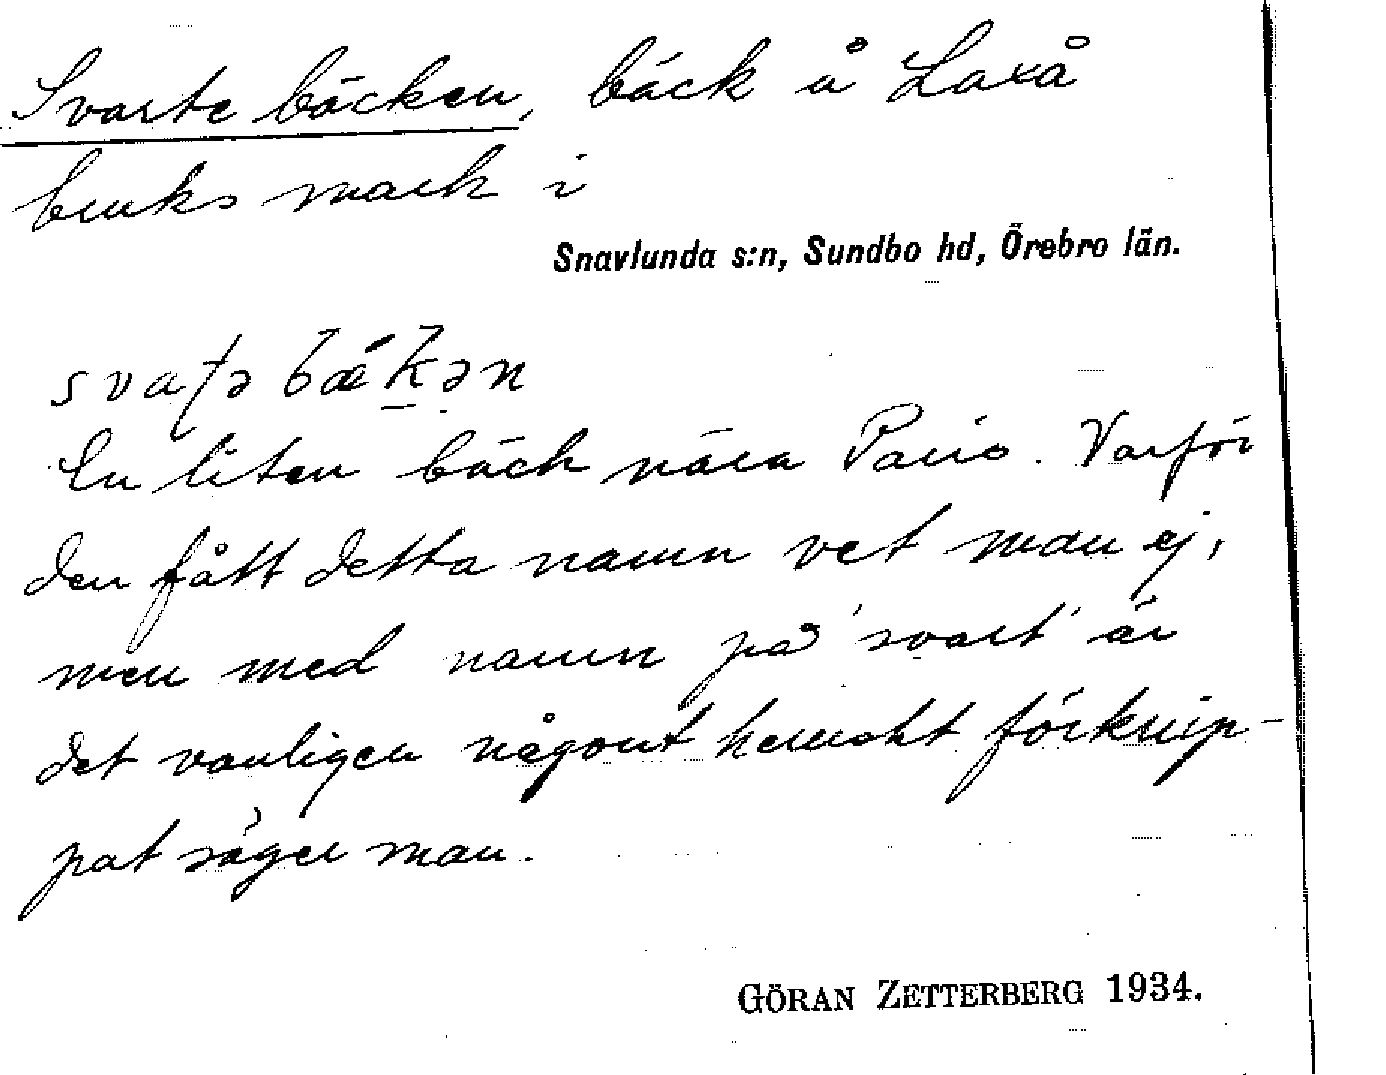 Svarte bäcken, bäck å Laxå
bruks mark i
Snavlunda s:n, Sundbo hd, Örebro län.
svaʈə bǽk̲ən
En liten bäck nära Paris. Varför
den fått detta namn vet man ej,
men med namn på 'svart' är
det vanligen någont hemskt förknip-
pat säger man.
GÖRAN ZETTERBERG 1934.